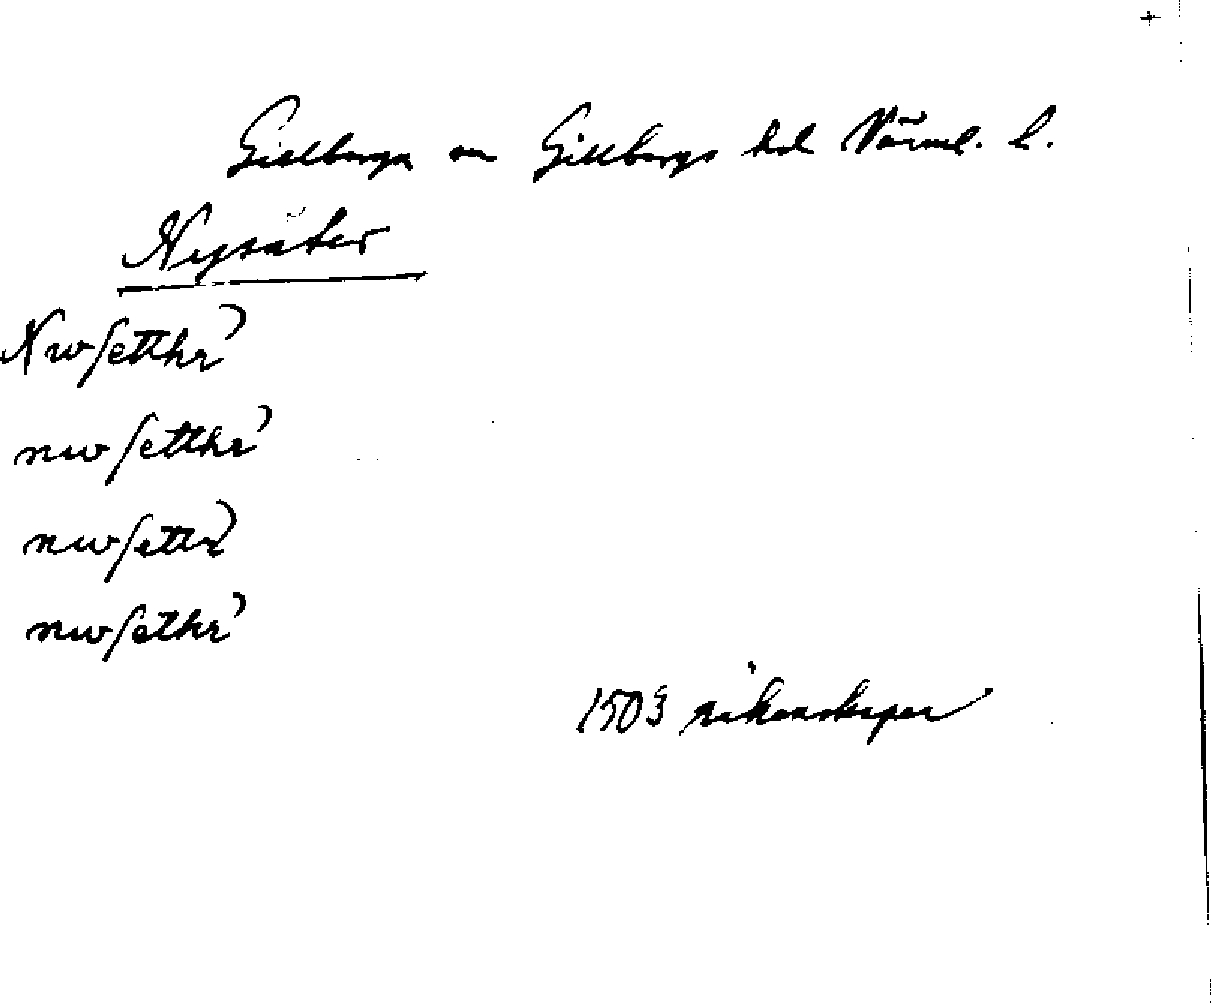 +
Gillberga sn Gillbergs hd Värml. l.
Nysäter
Nwſetthr
nwſetthr
nwſettr
nwſethr
1503 räkenskaper